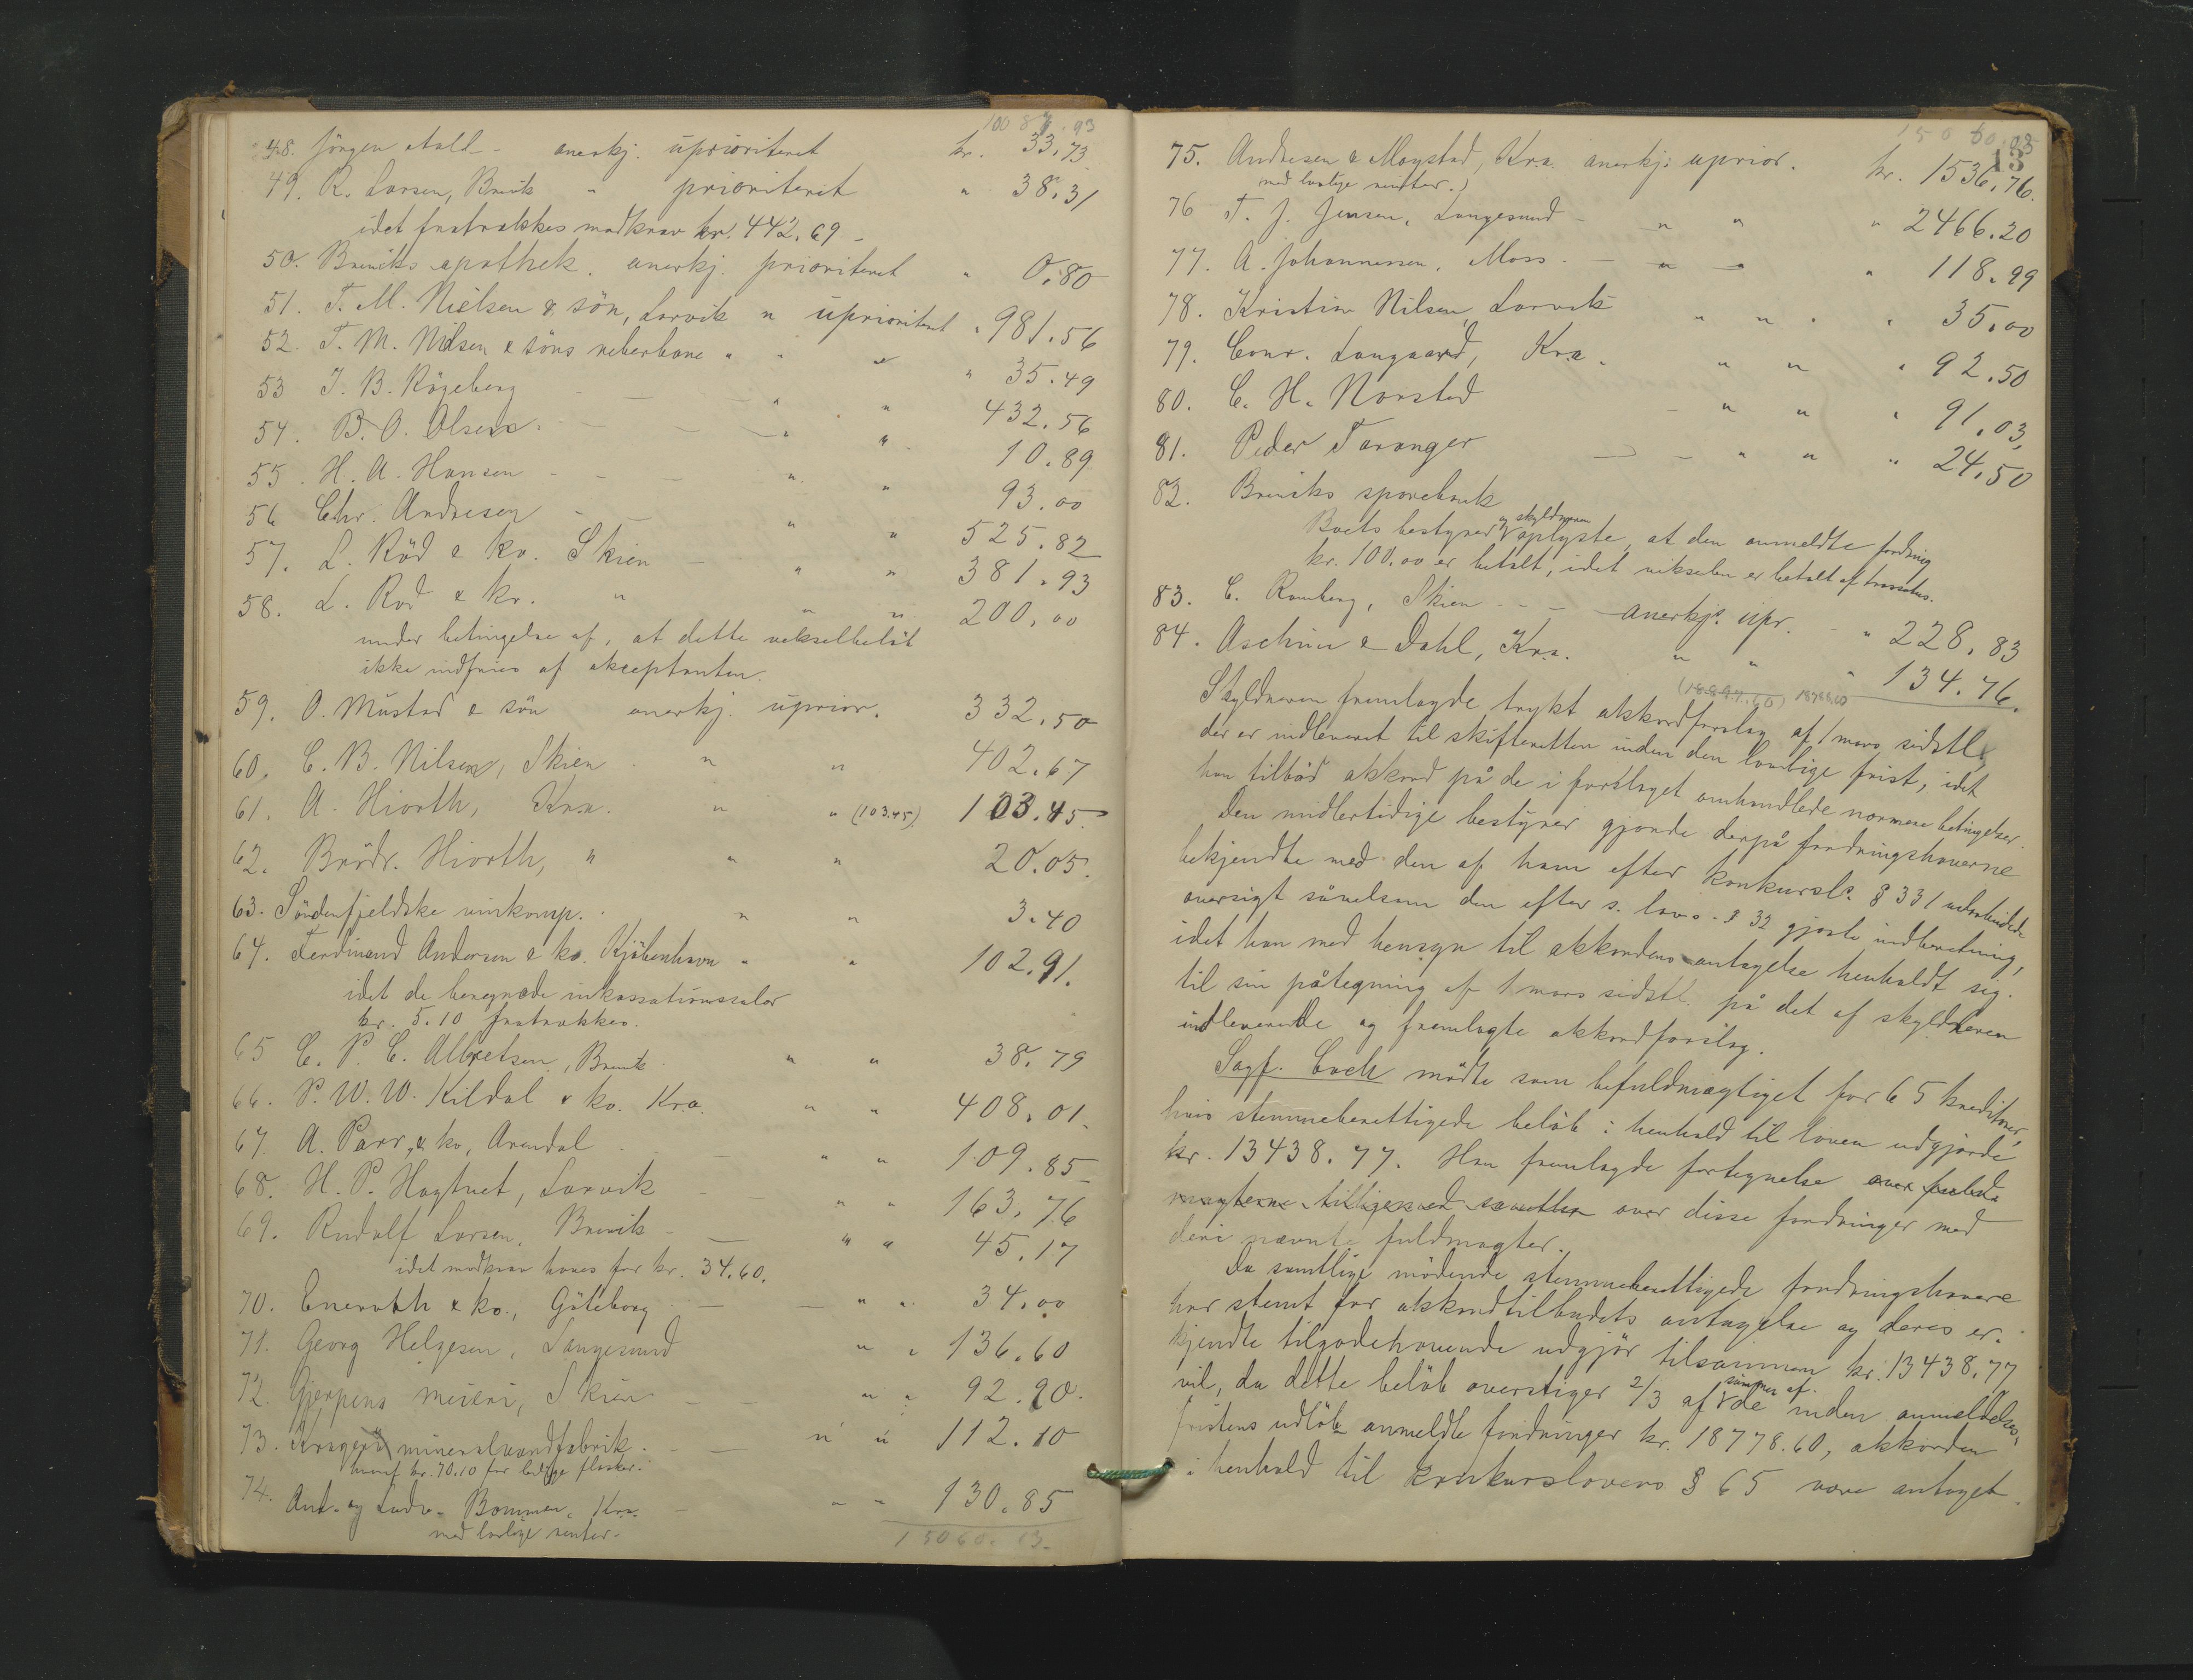 48. Jörgen anerkj. uprioriteret kr. 33,73
49. R. Larsen, Brevik " prioriteret " 38.31
idet fratrækkes modkrav kr. 442.69
50. Breviks apothek. anerkj. prioriteret " 0.80
51. T. M. Nielsen & sön, Larvik " uprioriteret " 981.56
52. T. M. Nilsen & söns reberbane " " " " 35.49
53 J. B. Rögeberg - - " " 432.56
54. B. O. Olsen. - - " " 10.89
55. H. A. Hansen - - " " 93.00
56 Chr. Andresen - - " " 525.82
57. L. Röd & ko. Skien - " " 381.93
58. L. Röd & ko. " " " 200.00
under betingelse af, at dette vekselbelöb
ikke indfries af akceptanten.
59. O. Mustad & sön anerkj. uprior. 332.50
60. C. B. Nilsen, Skien " " 402.67
61. A. Hiorth, Kra. " " (103.45) 103.45
62. Brödr. Hiorth, " " " 20.05.
63. Söndenfjeldske vinkomp. " " 3.40
64. Ferdinand Andersen & ko. Kjöbenhavn " " 102.91.
idet de beregnede inkassationssalær
kr. 5.10 fratrækkes.
65 C. P. C. Albretsen, Brevik " " 38.79
66. P. W. W. Kildal & ko. Kra. " " 408.01.
67. A. Parr & ko, Arendal - " " 109.85
68. H. P. Hagtvet, Larvik - - " " 163.76
69. Rudolf Larsen, Brevik - - " " 45.17
idet modkrav haves for kr. 34.60.
70. Eneroth & ko., Göteborg - - " " 34.00
71. Georg Helgesen, Langesund " " 136.60
72. Gjerpens meieri, Skien - - " " 92.20.
73. Kragerö mineralvandfabrik. - " " 112.10
heraf kr. 70.10 for ledige flasker.
74. Ant. og Ludv. Bommen, Kra. - " " 130.85
med lovlige renter.
15060.03.
13
75. Andresen & Mogstad, Kra. anerkj. uprior. kr. 1536.76.
med lovlige renter.)
76 T. J. Jensen, Langesund - " " " 2466.20
77. A. Johannessen, Moss. - " " " 118.99
78. Kristine Nilsen, Larvik " " " 35.00
79. Conr. Langaard, Kra. " " " 92.50
80. C. H. Norsted - " " " 91.03,
81. Peder Taranger - - " " " 24.50
82. Breviks sparebank
Boets bestyrer og skyldneren oplyste, at den anmeldte fordring
kr. 100.00 er betalt, idet vekselen er betalt af trassatus.
83. C. Romberg, Skien - - anerkj. upr. - " 228.83
84. Aschim & Dahl, Kra. " " " 134.76.
Skyldneren fremlagde trykt akkordforslag af 1 mars sidstl.
der er indleveret til skifteretten inden den lovbige frist, idet
han tilböd akkord på de i forslaget omhandlede nærmere betingelser.
Den midlertidige bestyrer gjorde derpå fordringshaverne
bekjendte med den af ham efter konkursl. § 331 udarbeidede
oversigt såvelsom den efter s. lovs § 32 gjorte indberetning,
idet han med hensyn til akkordens antagelse henholdt sig
til sin påtegning af 1 mars sidstl. på det af skyldneren
indleverede og fremlagte akkordforslag.
Sagf. Coch mödte som befuldmægtiget for 65 kreditorer,
hvis stemmeberettigede belöb i henhold til loven udgjorde
kr. 13438.77. Han fremlagde fortegnelse over fuld-
magterne tilligemed samtlige over disse fordringer med
deri nævnte fuldmagter.
Da samtlige mödende stemmeberettigede fordringshavere
har stemt for akkordtilbudets antagelse og deres er-
kjendte tilgodehavende udgjör tilsammen kr. 13438.77
vil, da dette belöb overstiger 2/3 af summen af de inden anmeldelses-
fristens udlöb anmeldte fordringer kr. 18778.60, akkorden
i henhold til konkurslovens § 65 være antaget.